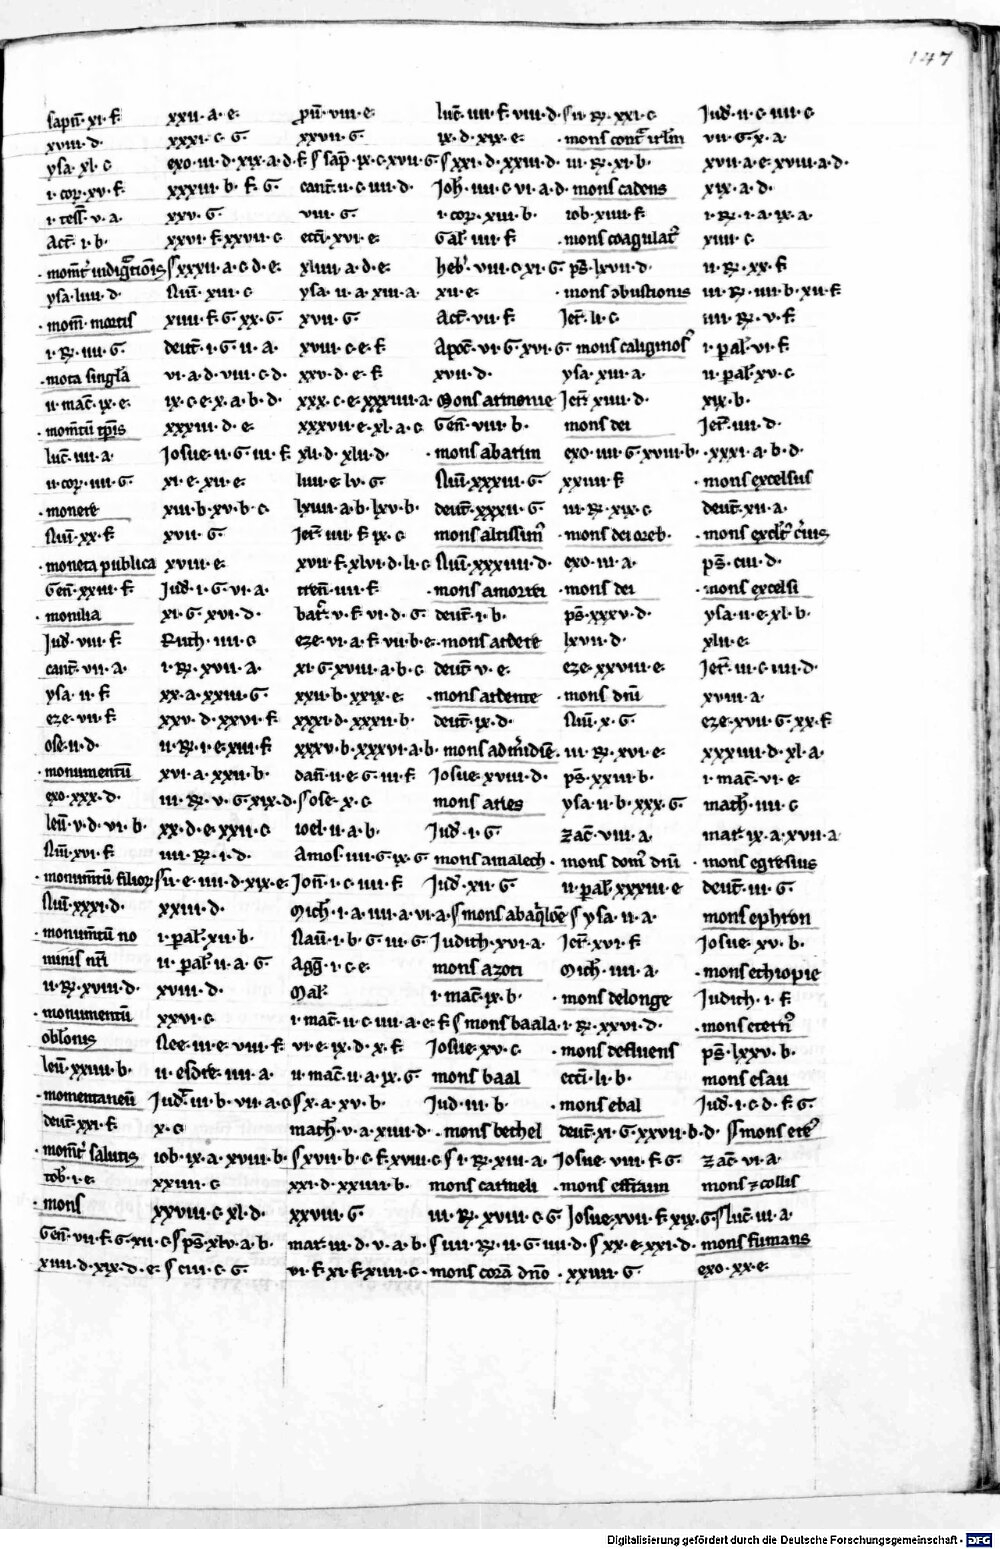 147
sapiē· xi· f·
xviii· d·
ysa· xl· c
i· cor̄· xv· f·
i· tess̄· v· a·
Act̄· i· b·
· mom̄t indignationis
ysa· liiii· d·
· mom̄· mortis
i· R̄· iiii· G·
· mota singlā
ii· mac̄· ix· e·
· mom̄tū tp̄is
luc̄· iiii· a·
ii· cor̄· iiii· G·
· monere
Nū· xx· f·
· moneta publica
Gen̄· xxiii· f·
· monilia
Jud̄· viii· f·
cant̄· vii· a·
ysa· ii· f·
eze· vii· f·
ose· ii· d·
· monumentū
exo· xxx· d·
leū· v· d· vi· b·
Nū· xvi· f·
· monum̄tū filior
Nū· xxxi· d·
· monum̄tū no
minis nr̄i
ii· R̄· xviii· d·
· monumentū
obl̄onis
leū· xxiiii· b·
· momentaneū
deut̄· xxi· f·
· mom̄t salutis
tob̄· i· e·
· mons
Gen̄· vii· f· G· xii· c
xiiii· d· xix· d· e·
xxii· a· e·
xxxi· c· G·
exo· iii· d· xix· a· d· f·
xxxiii· b· f· G·
xxv· G·
xxvi· f· xxvii· c
xxxii· a· c· d· e·
Nū· xiii· c
xiiii· f· G· xx· G·
deut̄· i· G· ii· a·
vi· a· d· viii· c· d·
ix· c· e· x· a· b· d·
xxxiii· d· e·
Josue· ii· G· iii· f·
xi· e· xii· e·
xiii· b· xv· b· c
xvii· G·
xviii· e·
Jud̄· i· G· vi· a·
xi· G· xvi· d·
Ruth· iiii· c
i· R̄· xvii· a·
xx· a· xxiii· G·
xxv· d· xxvi· f·
ii· R̄· i· e· xiii· f·
xvi· a· xxii· b·
iii· R̄· v· G· xix· d·
xx· d· e· xxii· c
iiii· R̄· i· d·
ii· e· iiii· d· xix· e·
xxiii· d·
i· paral̄· xii· b·
ii· paral̄· ii· a· G·
xviii· d·
xxvi· c
Nee· iii· e· viii· f·
ii· esdre· iiii· a·
Jud̄t· iii· b· vii· a· c
x· c
iob· ix· a· xviii· b·
xxiiii· c
xxviii· c· xl· d·
ps̄· xlv· a· b·
ciii· c· G·
pū· viii· e·
xxvii· G·
sap̄· ix· c· xvii· G·
cant̄· ii· c· iiii· d·
viii· G·
ecc̄i· xvi· e·
xliiii· a· d· e·
ysa· ii· a· xiii· a·
xvii· G·
xviii· c· e· f·
xxv· d· e· f·
xxx· c· e· xxxiiii· a·
xxxvii· e· xl· a· c
xli· d· xlii· d·
liiii· e· lv· G·
lxiiii· a· b· lxv· b·
Jer̄· iiii· f· ix· c
xvii· f· xlvi· d· li· c
tren̄· iiii· f·
bar̄· v· f· vi· d· G·
eze· vi· a· f· vii· b· e·
xi· G· xviii· a· b· c
xxii· b· xxix· e·
xxxi· d· xxxii· b·
xxxv· b· xxxvi· a· b
dan̄· ii· e· G· iii· f·
ose· x· c
ioel· ii· a· b·
Amos· iiii· G· ix· G·
Jon̄· i· c· iiii· f·
Mich̄· i· a· iiii· a· vi· a·
Naū· i· b· G· iii· G·
Agḡ· i· c· e·
Mal̄·
i· mac̄· ii· c· iiii· a· e· f·
vi· e· ix· d· x· f·
ii· mac̄· ii· a· ix· G·
x· a· xv· b·
math̄· v· a· xiiii· d·
xvii· b· c· f· xviii· c
xxi· d· xxiiii· b·
xxviii· G·
mar̄· iii· d· v· a· b·
vi· f· xi· f· xiiii· c·
luc̄· iiii· f· viii· d·
ix· d· xix· e·
xxi· d· xxiii· d·
Joh̄· iiii· c· vi· a· d·
i· cor̄· xiii· b·
Gal̄· iiii· f·
heb̄· viii· c· xi· G·
xii· e·
Act̄· vii· f·
Apoc̄· vi· G· xvi· G·
xvii· d·
Mons armenie
Gen̄· viii· b·
· mons abarim
Nū· xxxiii· G·
deut̄· xxxii· G·
mons altissim̄
Nū· xxxiiii· d·
· mons amorrei
deut̄· i· b·
· mons ardere
deut̄· v· e·
· mons ardente
deut̄· ix· d·
mons ad m̄idiē·
Josue· xviii· d·
mons aries
Jud̄· i· G·
mons amalech·
Jud̄· xii· G·
mons abaq̄loē
Judith· xvi· a·
mons azoti
i· mac̄· ix· b·
mons baala·
Josue· xv· c·
mons baal
Jud· iii· b·
· mons bethel
i· R̄· xiii· a·
mons carmeli
iii· R̄· xviii· c· G·
iiii· R̄· ii· G· iiii· d·
mons corā dn̄o
ii· R̄· xxi· c
· mons cont̄ irl̄m
iii· R̄· xi· b·
mons cadens
iob· xiiii· f·
· mons coagulat̄
ps̄· lxvii· d·
· mons ɔbustionis
Jer̄· li· c
mons caliginos̄
ysa· xiii· a·
Jer̄· xiii· d·
mons dei
exo· iiii· G· xviii· b·
xxiiii· f·
iii· R̄· xix· c
· mons dei oreb·
exo· iii· a·
· mons dei
ps̄· xxxv· d·
lxvii· d·
eze· xxviii· e·
· mons dn̄i
Nū· x· G·
iii· R̄· xvi· e·
ps̄· xxiii· b·
ysa· ii· b· xxx· G·
zac̄· viii· a·
· mons dom̄ dn̄i
ii· paral̄· xxxiii· e
ysa· ii· a·
Jer̄· xvi· f·
Mich̄· iiii· a·
· mons delonge
i· R̄· xxvi· d·
· mons defluens
ecc̄i· li· b·
· mons ebal
deut̄· xi· G· xxvii· b· d·
Josue· viii· f· G·
· mons effraim
Josue· xvii· f· xix· G·
xx· e· xxi· d·
· xxiiii· G·
Jud̄· ii· c· iiii· c
vii· G· x· a·
xvii· a· e· xviii· a· d·
xix· a· d·
i· R̄· i· a· ix· a·
xiiii· c·
ii· R̄· xx· f·
iii· R̄· iiii· b· xii· f·
iiii· R̄· v· f·
i· paral̄· vi· f·
ii· paral̄· xv· c
xix· b·
Jer̄· iiii· d·
xxxi· a· b· d·
· mons excelsus
deut̄· xii· a·
· mons excl̄s c̄ius
ps̄· ciii· d·
· mons excelsi
ysa· ii· e· xl· b·
xlii· e·
Jer̄· iii· c· iiii· d·
xviii· a·
eze· xvii· G· xx· f·
xxxiiii· d· xl· a·
i· mac̄· vi· e·
math̄· iiii· c
mar̄· ix· a· xvii· a
· mons egressus
deut̄· iii· G·
mons ephron
Josue· xv· b·
· mons ethiopie
Judith· i· f·
· mons etern̄
ps̄· lxxv· b·
mons esau
Jud̄· i· c· d· f· G·
mons ete
zac̄· vi· a·
mons ⁊ collis
luc̄· iii· a·
mons fumans
exo· xx· e·
Digitalisierung gefördert durch die Deutsche Forschungsgemeinschaft - DFG